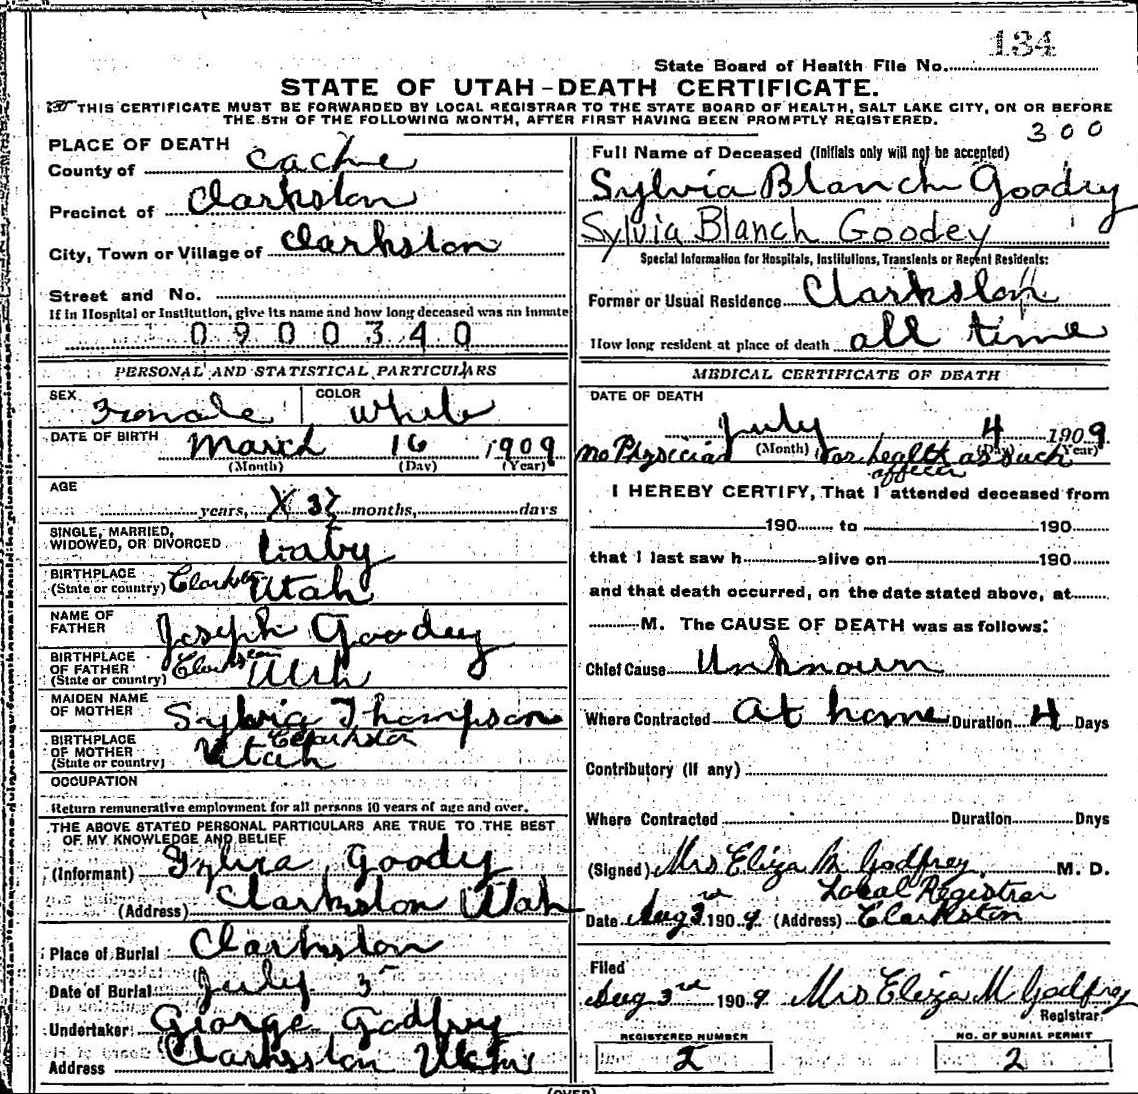 134
State Board of Health File No.
STATE OF UTAH-DEATH CERTIFICATE.
THIS CERTIFICATE MUST BE FORWARDED BY LOCAL REGISTRAR TO THE STATE BOARD OF HEALTH, SALT LAKE CITY, ON OR BEFORE
THE 5TH OF THE FOLLOWING MONTH, AFTER FIRST HAVING BEEN PROMPTLY REGISTERED.
300
PLACE OF DEATH
County of Cache
Precinct of Clarkston
City, Town or Village of Clarkston
Street and No.
If in Hospital or Institution, give its name and how long deceased was an inmate
0900340
PERSONAL AND STATISTICAL PARTICULARS
SEX Female COLOR White
DATE OF BIRTH March 16 1909
(Month) (Day) (Year)
AGE
years, X months, days
SINGLE, MARRIED,
WIDOWED, OR DIVORCED baby
BIRTHPLACE
(State or country) Clarkston Utah
NAME OF
FATHER Joseph Goodey
BIRTHPLACE
OF FATHER
(State or country) Clarkston Utah
MAIDEN NAME
OF MOTHER Sylvia Thompson
BIRTHPLACE
OF MOTHER
(State or country) Utah Clarkston
OCCUPATION
Return remunerative employment for all persons 10 years of age and over.
THE ABOVE STATED PERSONAL PARTICULARS ARE TRUE TO THE BEST
OF MY KNOWLEDGE AND BELIEF
(Informant) Sylvia Goody
(Address) Clarkston Utah
Place of Burial Clarkston
Date of Burial July 5
Undertaker George Godfrey
Address Clarkston Utah
Full Name of Deceased (Initials only will not be accepted)
Sylvia Blanch Goodey
Sylvia Blanch Goodey
Special Information for Hospitals, Institutions, Transients or Recent Residents:
Former or Usual Residence Clarkston
How long resident at place of death all time
MEDICAL CERTIFICATE OF DEATH
DATE OF DEATH
July 4 1909
(Month) (Day) (Year)
no Physician or health officer as such
I HEREBY CERTIFY, That I attended deceased from
190 to 190
that I last saw h alive on 190
and that death occurred, on the date stated above, at
M. The CAUSE OF DEATH was as follows:
Chief Cause Unknown
Where Contracted at home Duration 4 Days
Contributory (If any)
Where Contracted Duration Days
(Signed) Mrs Eliza M Godfrey M. D.
Local Registrar
Date Aug 3rd 1909 (Address) Clarkston
Filed
Aug 3rd 1909 Mrs Eliza M Godfrey
Registrar.
REGISTERED NUMBER
2
NO. OF BURIAL PERMIT
2
(OVER)